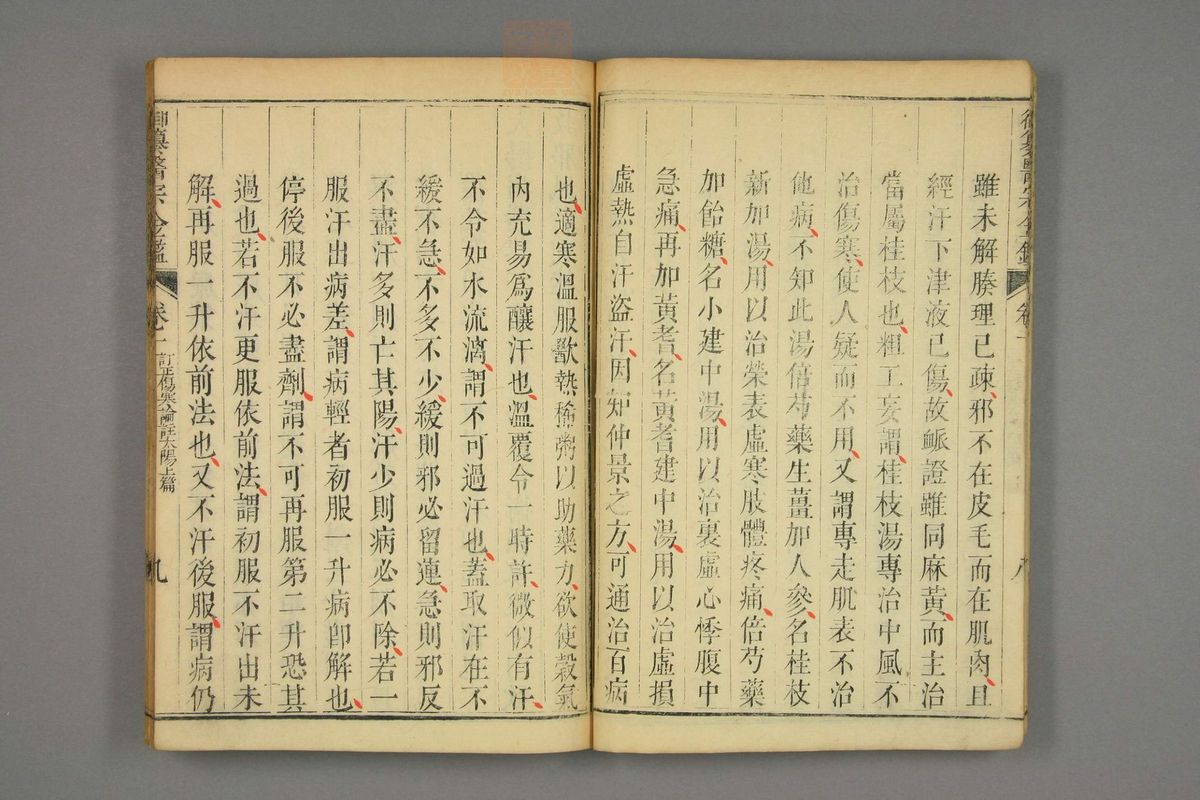 雖未解腠理已疎邪不在皮毛而在肌肉且
經汗下津液已傷故脈證雖同麻黃而主治
當屬桂枝也粗工妄謂桂枝湯專治中風不
治傷寒使人疑而不用又謂專走肌表不治
他病不知此湯倍芍藥生薑加人參名桂枝
新加湯用以治榮表虛寒肢體疼痛倍芍藥
加飴糖名小建中湯用以治裏虛心悸腹中
急痛再加黃耆名黃耆建中湯用以治虛損
虛熱自汗盜汗因知仲景之方可通治百病
也適寒溫服歠熱稀粥以助藥力欲使穀氣
內充易爲釀汗也溫覆令一時許微似有汗
不令如水流漓謂不可過汗也蓋取汗在不
緩不急不多不少緩則邪必留連急則邪反
不盡汗多則亡其陽汗少則病必不除若一
服汗出病差謂病輕者初服一升病卽解也
停後服不必盡劑謂不可再服第二升恐其
過也若不汗更服依前法謂初服不汗出未
解再服一升依前法也又不汗後服謂病仍
御纂醫宗金鑑
卷一
訂正傷寒論註太陽上篇
九